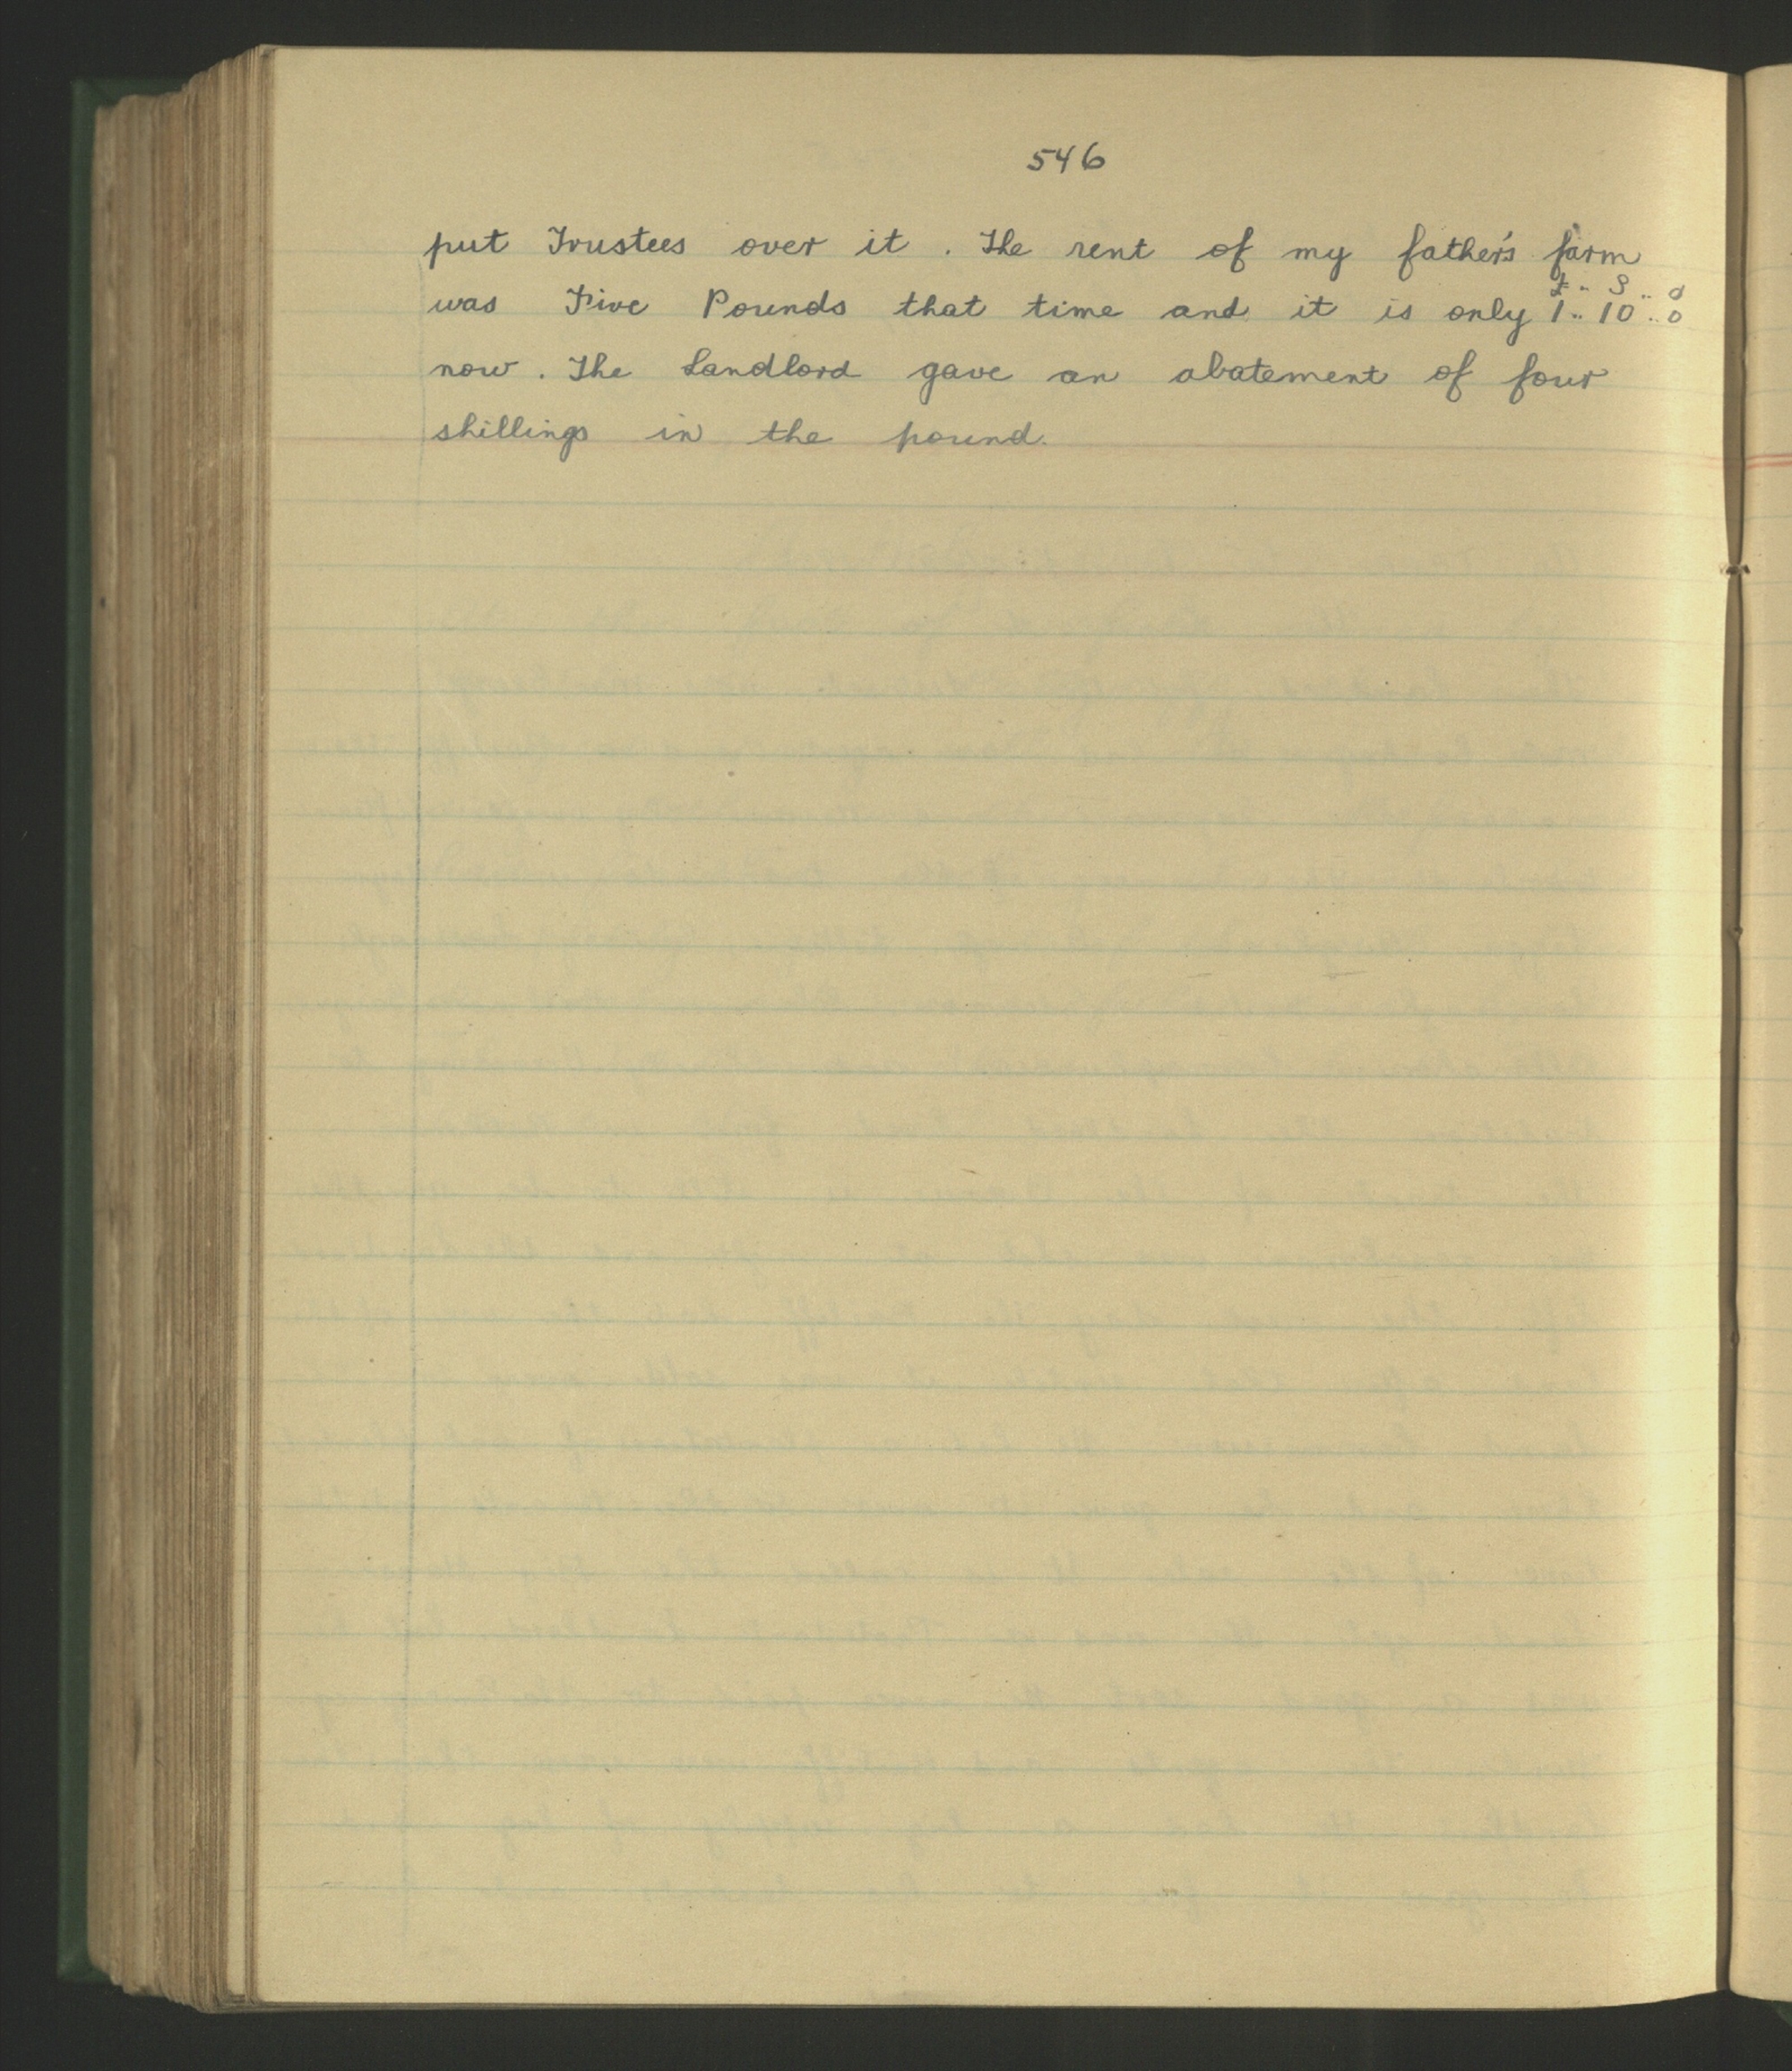 546
put Trustees over it. The rent of my father's farm
£ .. S .. d
was Five Pounds that time and it is only 1 .. 10 .. 0
now. The Landlord gave an abatement of four
shillings in the pound.